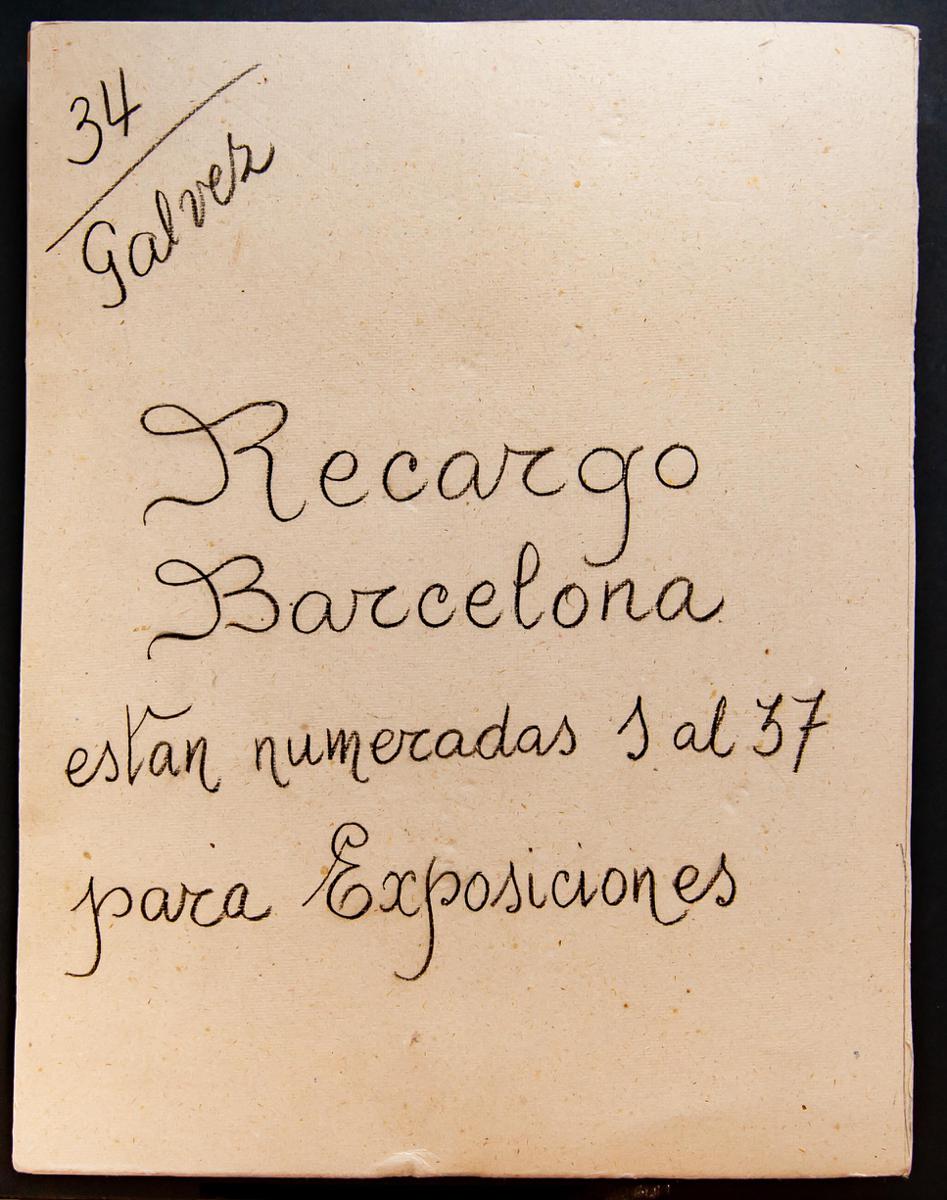 34
Galvez
Recargo
Barcelona
estan numeradas 1 al 37
para Exposiciones